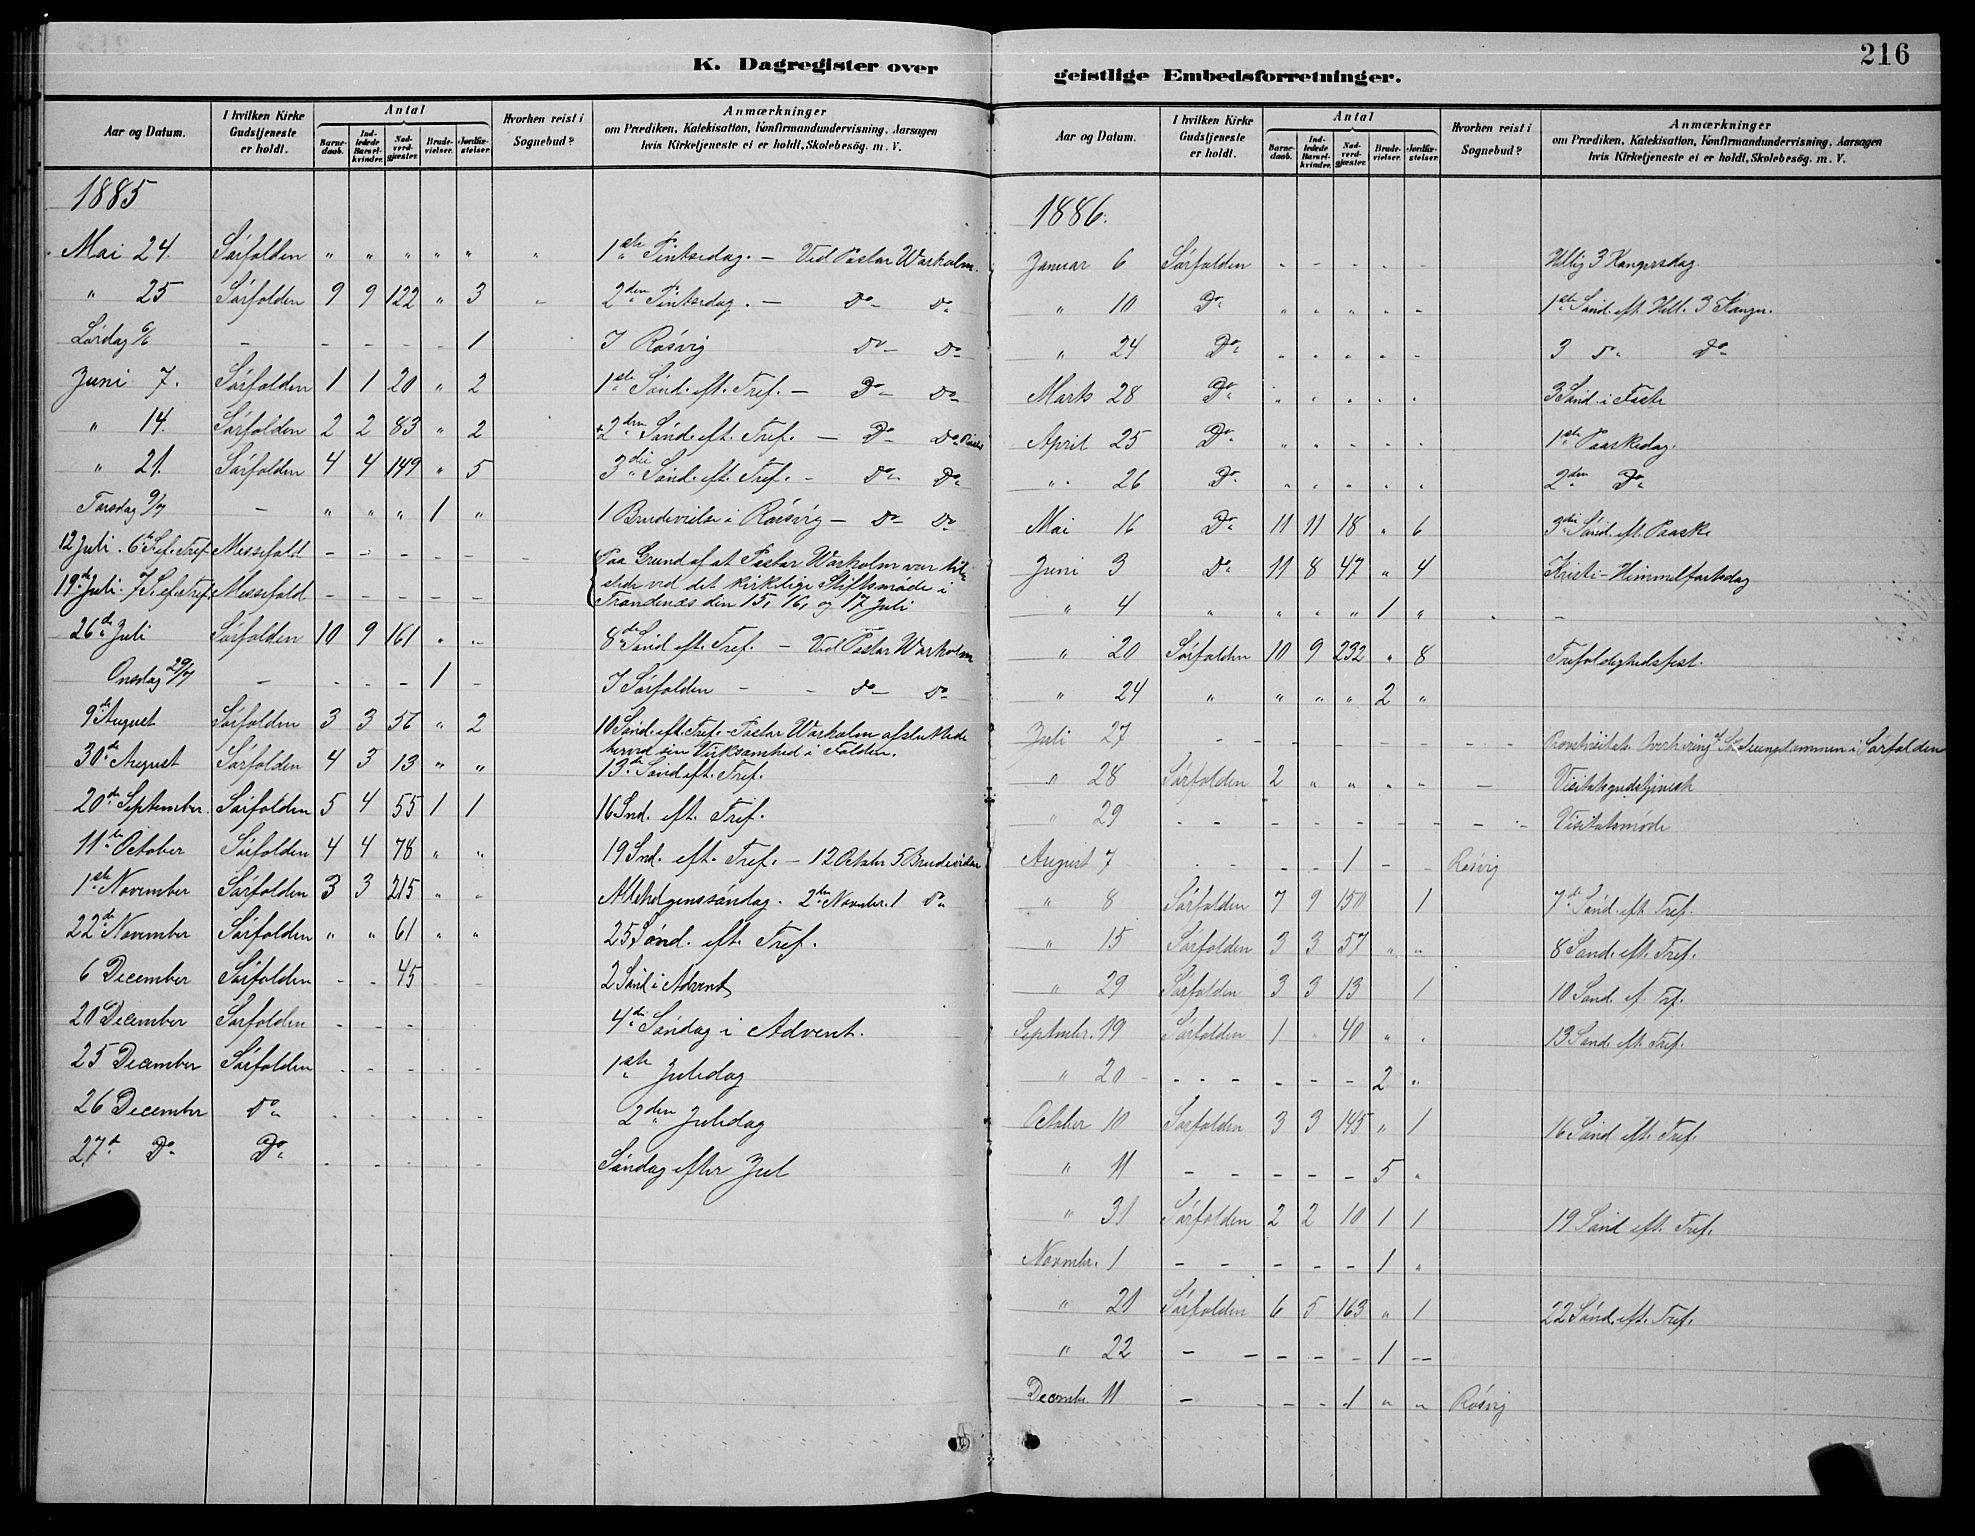 216
K. Dagregister over
geistlige Embedsforretninger.
Aar og Datum. I hvilken Kirke Gudstjeneste er holdt. Antal Barne-daab. Ind-ledede Barsel-kvinder. Nad-verd-gjester. Brude-vielser. Jordfæ-stelser. Hvorhen reist i Sognebud? Anmærkninger om Prædiken, Katekisation, Konfirmandundervisning, Aarsagen hvis Kirketjeneste ei er holdt, Skolebesög. m. V.
1885
Mai 24. Sørfolden " " " " " " 1ste Pintsedag. — Ved Pastor Warholm.
" 25 Sørfolden 9 9 122 " 3 - 2den Pintsedag. — Do Do
Lørdag 6/6 - - - - - 1 I Røsvig Do Do
Juni 7. Sørfolden 1 1 20 " 2 1ste Sönd. eft. Tref. — Do Do
" 14. Sørfolden 2 2 83 " 2 2den Sönd. eft. Tref. — Do Do
" 21. Sørfolden 4 4 149 " 5 3die Sönd. eft. Tref. — Do Do
Torsdag 9/7 - " " " 1 " 1 Brudevielse i Røsvig — Do Do
12 Juli. 6 S. ef. Tref. Messefald - - - - - - Paa Grund af at Pastor Warholm var til-
19de Juli. 7 S. ef. Tref. Messefald - - - - - stede ved det kirkelige Stiftsmøde i
Trondenæs den 15, 16, og 17 Juli
26de Juli Sørfolden 10 9 161 " " 8de Sönd. eft. Tref. — Ved Pastor Warholm
Onsdag 29/7 - - - - 1 - I Sørfolden - - Do Do
9de August Sørfolden 3 3 56 " 2 10 Sönd. eft. Tref. - Pastor Warholm afsluttede
herved sin Virksamhed i Folden.
30de August Sørfolden 4 3 13 " " 13de Sönd. eft. Tref.
20de September. Sørfolden 5 4 55 1 1 16 Snd. eft. Tref.
11te October Sørfolden 4 4 78 " " 19 Snd. eft. Tref. — 12 October 5 Brudevielser
1ste November Sørfolden 3 3 215 " " Allehelgenssöndag. 2den Novmbr. 1 Do
22de November Sørfolden " " 61 " " 25 Sønd. eft. Tref.
6 December Sørfolden - - 45 - - 2 Sönd i Advent
20 December Sørfolden - - - - - 4de Söndag i Advent.
25 December Sørfolden - - - - - 1ste Juledag
26 December Do - - - - - 2den Juledag
27de Do Do - - - - - Söndag efter Jul
Aar og Datum. I hvilken Kirke Gudstjeneste er holdt. Antal Barne-daab. Ind-ledede Barsel-kvinder. Nad-verd-gjester. Brude-vielser. Jordfæ-stelser. Hvorhen reist i Sognebud? Anmærkninger om Prædiken, Katekisation, Konfirmandundervisning, Aarsagen hvis Kirketjeneste ei er holdt, Skolebesög. m. V.
1886.
Januar 6 Sørfolden - - - - - Hellig 3 Kongersdag.
" 10 Do " " " " " 1ste Sönd. eft. Hell. 3 Konger.
" 24 Do " " " " " 3 Do Do
Marts 28 Do " " " " " 3 Sönd. i Faste
April 25 Do " " " " " 1ste Paaskedag.
" 26 Do " " " " " 2den Do
Mai 16 Do 11 11 18 " 6 3die Sönd. eft. Paaske
Juni 3 Do 11 8 47 " 4 Kristi-Himmelfartsdag
" 4 " " " " 1 " -
" 20 Sørfolden 10 9 232 " 8 Trefoldighedsfest.
" 24 " " " " 2 "
Juli 27 - - - - - - - - Provstvisitats. i Sørfolden
" 28 Sørfolden 2 " " " " - Visitatsgudstjeneste
" 29 - - - - - - - - Visitatsmøde
August 7 - - - 1 - - Røsvig
" 8 Sørfolden 7 9 150 1 7de Sönd. eft. Tref.
" 15 Sørfolden 3 3 57 " " 8 Sönd. eft. Tref.
" 29 Sørfolden 3 3 13 1 10 Sönd. ef. Trf.
Septmbr. 19 Sørfolden 1 " 40 " " 13 Sönd. eft. Tref.
" 20 - - - - - - 2 "
October 10 Sørfolden 3 3 145 " 1 16 Sönd. eft. Tref.
" 11 - - - - - 5 "
" 31 Sørfolden 2 2 10 1 1 19 Sönd eft. Tref.
Novmbr. 1 - - - - - 1 "
" 21 Sørfolden 6 5 163 " 1 22 Sönd. eft. Tref.
" 22 - - - - - 1 -
Decmbr. 11 - - - - 1 " " Røsvig